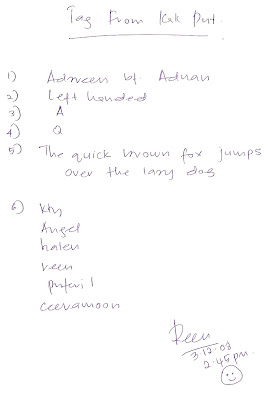 Tag From Kak Put.
1) Adreen bt. Adnan
2) Left handed
3) A
4) Q
5) The quick brown fox jumps
over the lazy dog
6) Kty
Angel
halen
reen
puteri 1
ceeramoon
Reen
3.12.08
2.45 pm.